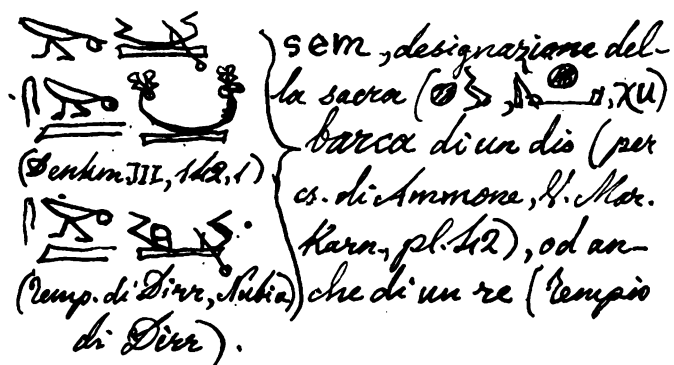 (Denkm III, 142, 1)
(Temp. di Dirr, Nubia)
sem, designazione del-
la sacra ( , , χu)
barca di un dio (per
es. di Ammone, V. Mar.
Karn., pl. 42), od an-
che di un re (Tempio
di Dirr).